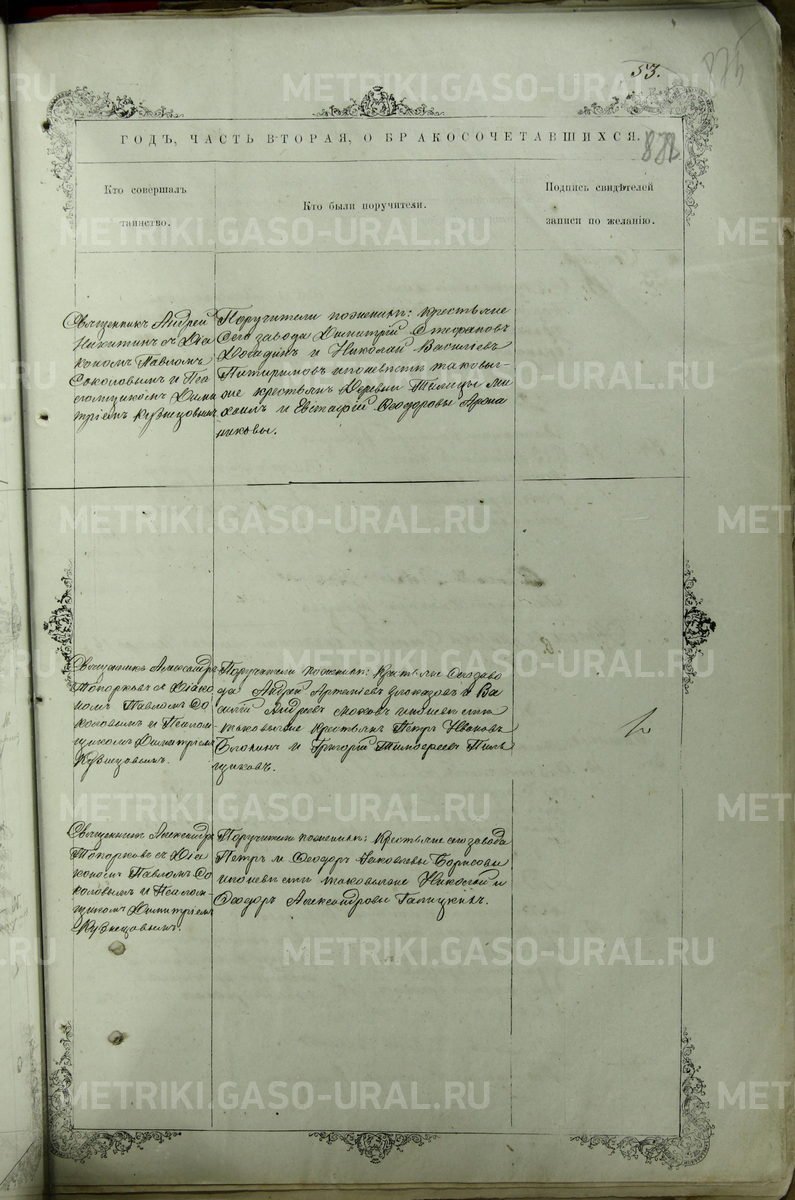 53.
875
ГОДЪ, ЧАСТЬ ВТОРАЯ, О БРАКОСОЧЕТАВШИХСЯ.
Кто совершалъ
таинство.
Кто были поручители.
Подпись свидѣтелей
записи по желанію.
Священникъ Андрей
Никитинъ съ Діа
кономъ Павломъ
Соколовымъ и Пса
ломщикомъ Дими
тріемъ Кузнецовымъ
Поручители по женихѣ: крестьяне
сего завода Димитрій Стефановъ
и Николай Василіевъ
Питиримовъ и по невѣстѣ таковы-
же крестьяне деревни Ми
хаилъ и Евстафій Ѳеодоровы
Священникъ Александръ
Топорковъ съ Діако
номъ Павломъ Со
коловымъ и Псалом
щикомъ Димитріемъ
Кузнецовымъ.
Поручители по женихѣ: Крестьяне сего заво
да Андрей Артеміевъ и Ва
силій Андреевъ и по невѣстѣ
таковы же крестьяне Петръ Ивановъ
Блохинъ и Григорій Тимоѳеевъ Пиль
щиковъ.
Священникъ Александръ
Топорковъ съ Діа
кономъ Павломъ Со
коловымъ и Псалом
щикомъ Димитріемъ
Кузнецовымъ.
Поручители по женихѣ: Крестьяне сего завода
Петръ и Ѳеодоръ Яковлевы Борисовы
и по невѣстѣ таковы же Николай и
Ѳеодоръ Александровы Галицкихъ.
METRIKI.GASO-URAL.RU